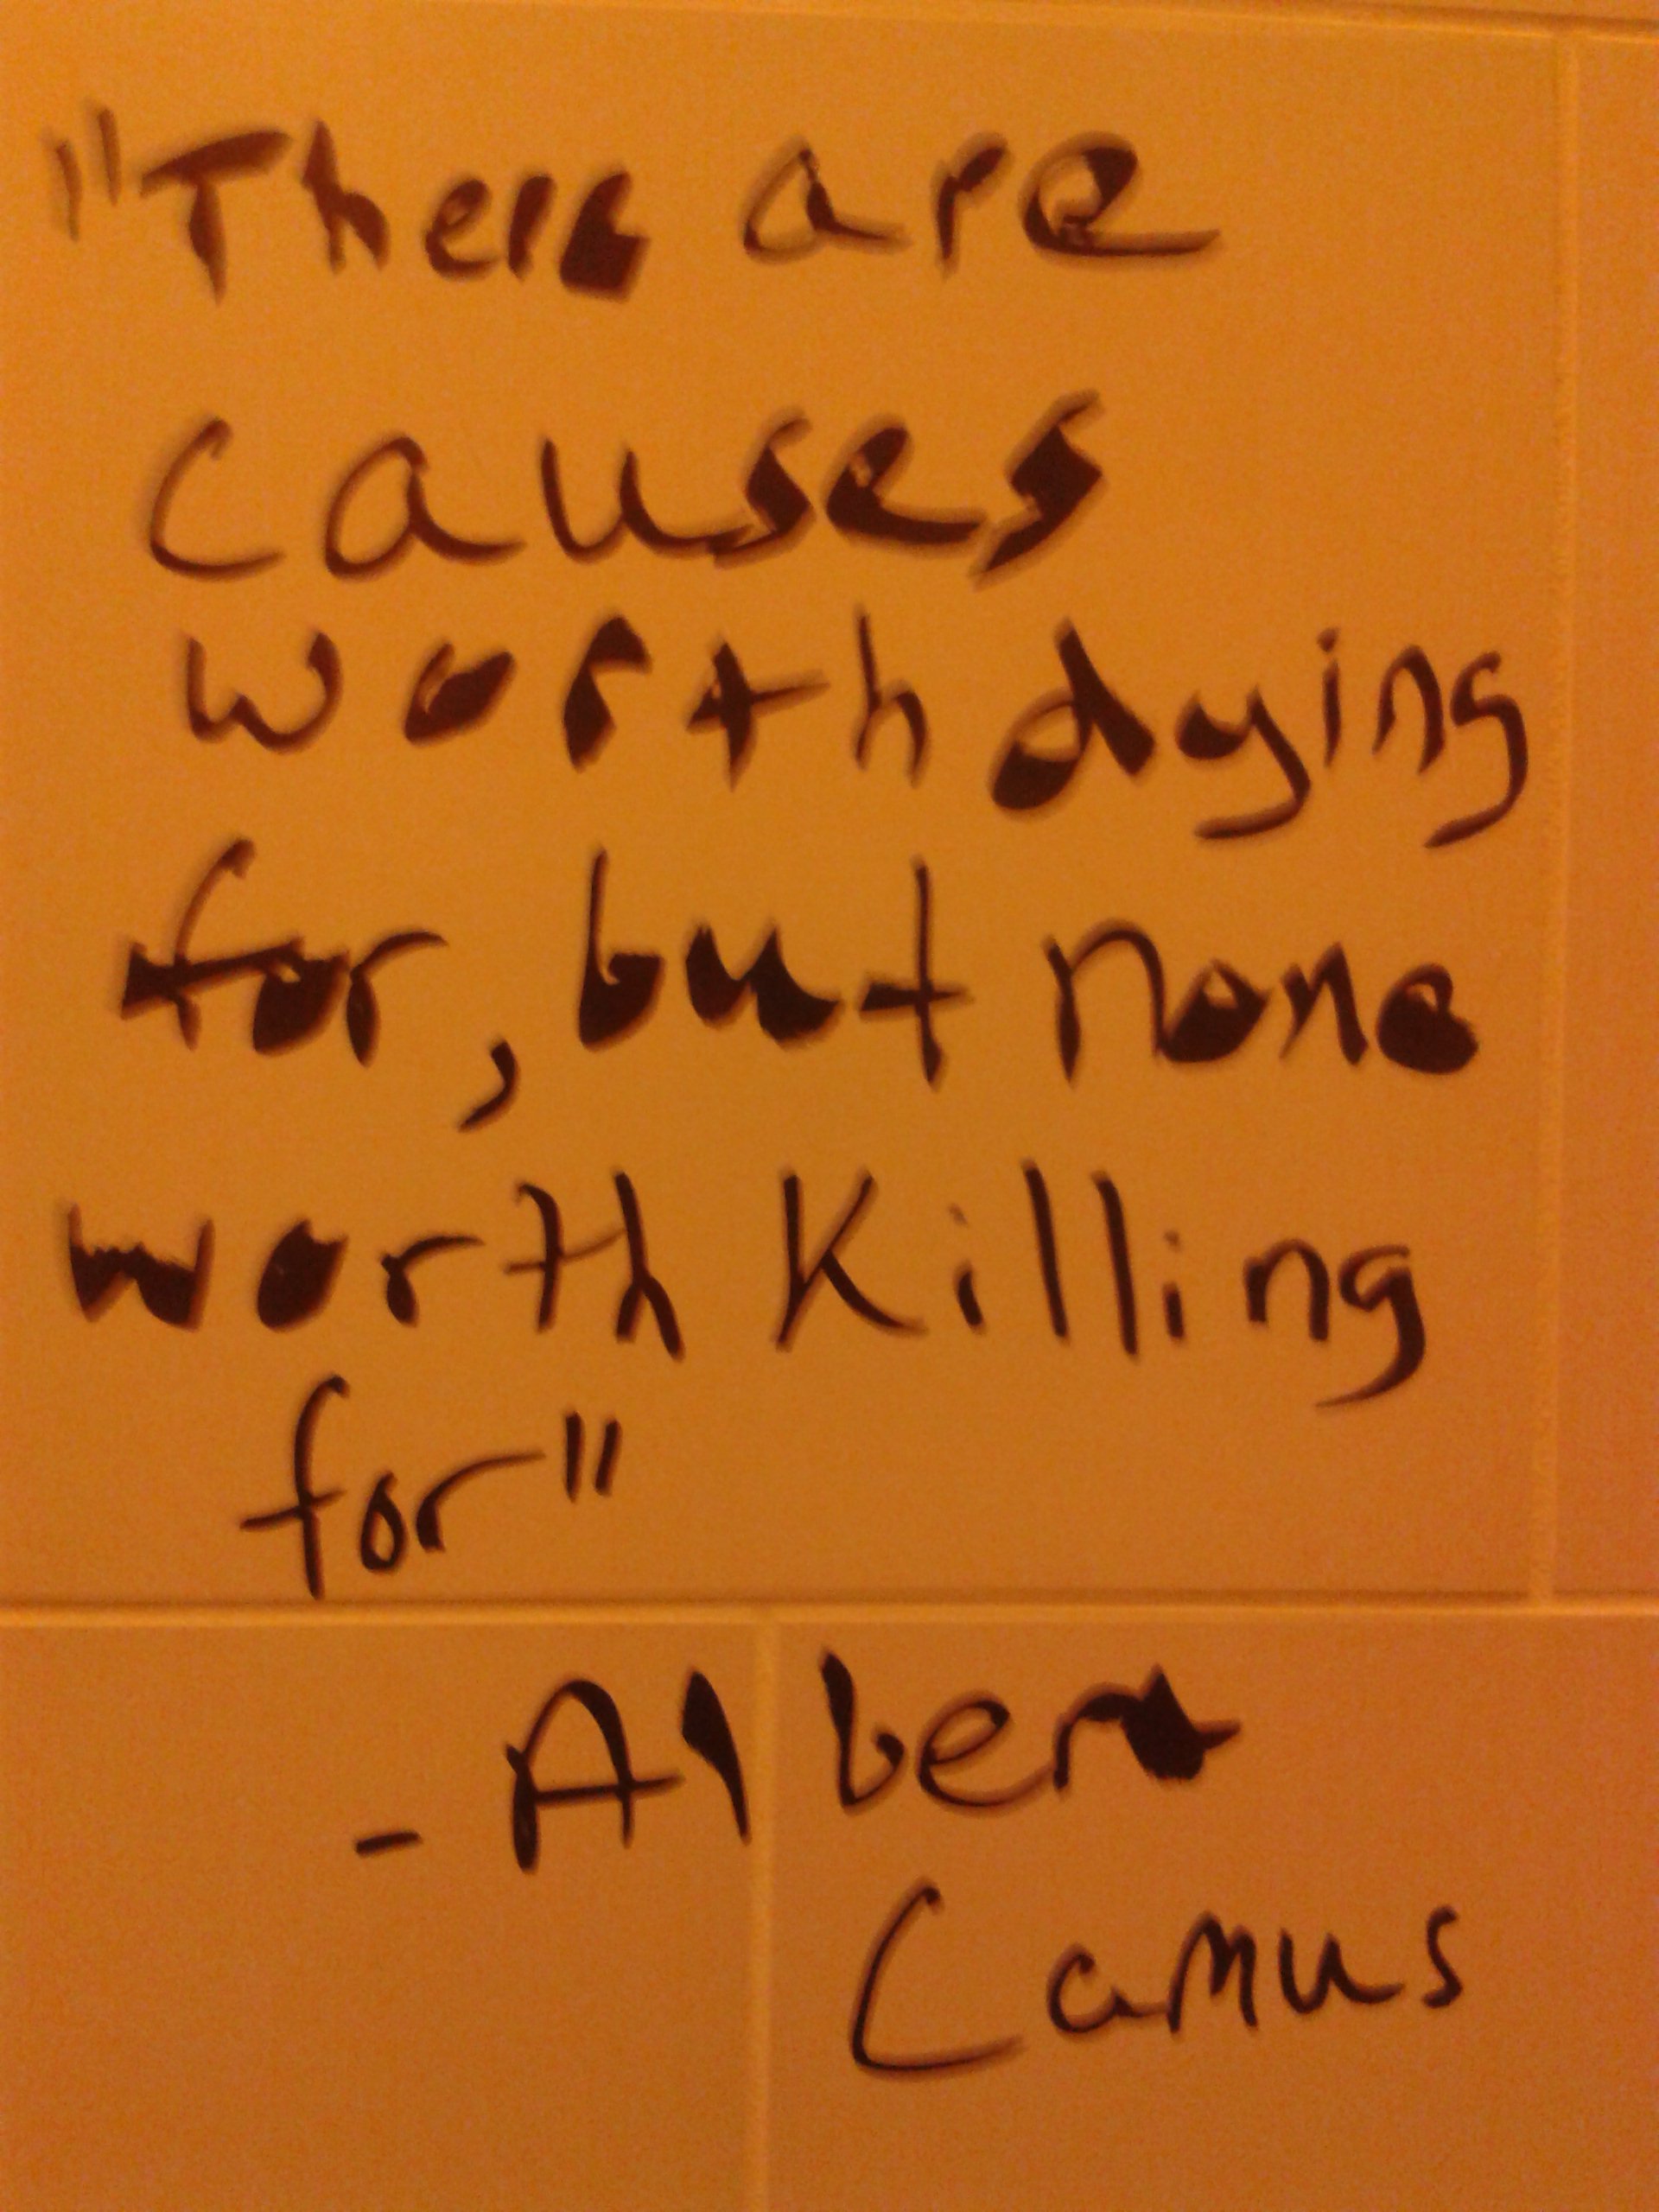 "There are
causes
worth dying
for, but none
worth Killing
for"
- Albert
Camus